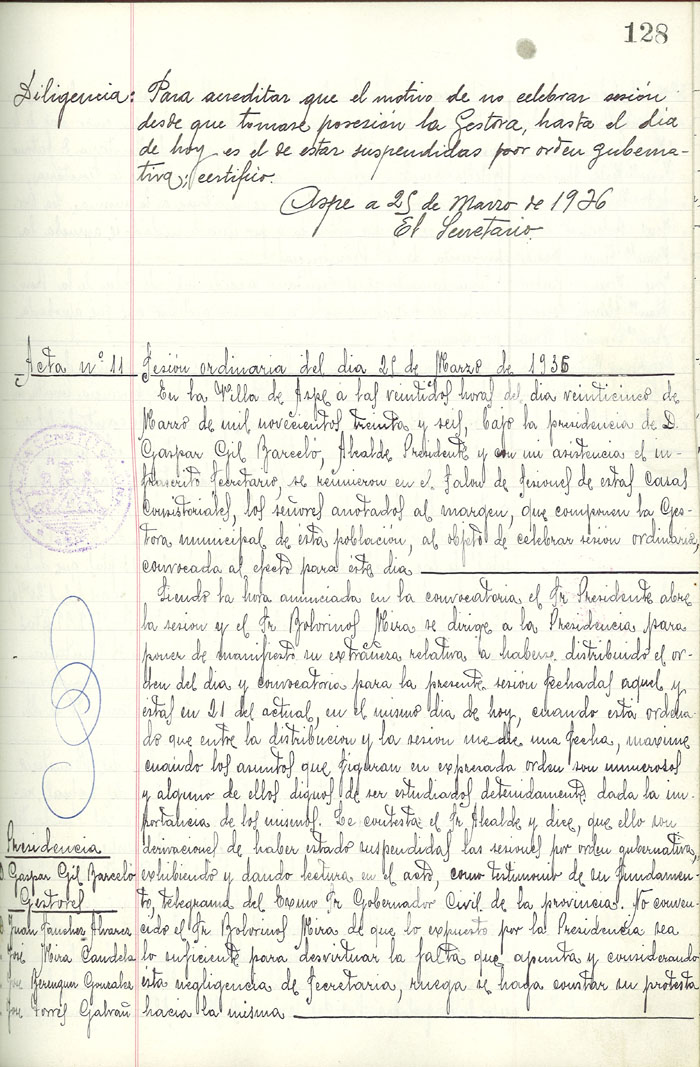 128
Diligencia: Para acreditar que el motivo de no celebrar sesión
desde que tomase posesión la Gestora, hasta el día
de hoy es el de estar suspendidas por orden guberna-
tiva; certifico.
Aspe a 25 de Marzo de 1936
El Secretario
Acta nº 11 Sesión ordinaria del dia 25 de Marzo de 1936
En la Villa de Aspe a las veintidos horas del dia veinticinco de
Marzo de mil novecientos treinta y seis, bajo la presidencia de D.
Gaspar Gil Barceló, Alcalde Presidente y con mi asistencia el in-
frascrito Secretario, se reunieron en el Salon de Sesiones de estas Casas
Consistoriales, los señores anotados al margen, que componen la Ges-
tora municipal de esta población, al objeto de celebrar sesión ordinaria,
convocada al efecto para este dia
Siendo la hora anunciada en la convocatoria el Sr Presidente abre
la sesion y el Sr Bolorinos Mira se dirige a la Presidencia para
poner de manifiesto su extrañeza relativa a haberse distribuido el or-
den del dia y convocatoria para la presente sesión fechadas aquel y
estas en 21 del actual, en el mismo dia de hoy, cuando está ordena-
do que entre la distribucion y la sesion medie una fecha, maxime
cuando los asuntos que figuran en expresada orden son numerosos
y alguno de ellos dignos de ser estudiados detenidamente dada la im-
portancia de los mismos. Le contesta el Sr Alcalde y dice, que ello son
derivaciones de haber estado suspendidas las sesiones por orden gubernativa,
exhibiendo y dando lectura en el acto, como testimonio de su fundamen-
to, telegrama del Excmo Sr Gobernador Civil de la provincia. No conven-
cido el Sr Bolorinos Mira de que lo expuesto por la Presidencia sea
lo suficiente para desvirtuar la falta que apunta y considerando
esta negligencia de Secretaria, ruega se haga constar su protesta
hacia la misma
Presidencia
D. Gaspar Gil Barceló
Gestores
Juan Sanchez Alvarez
José Mira Candela
Jose Berenguer Gonzalez
Jose Torres Galvañ